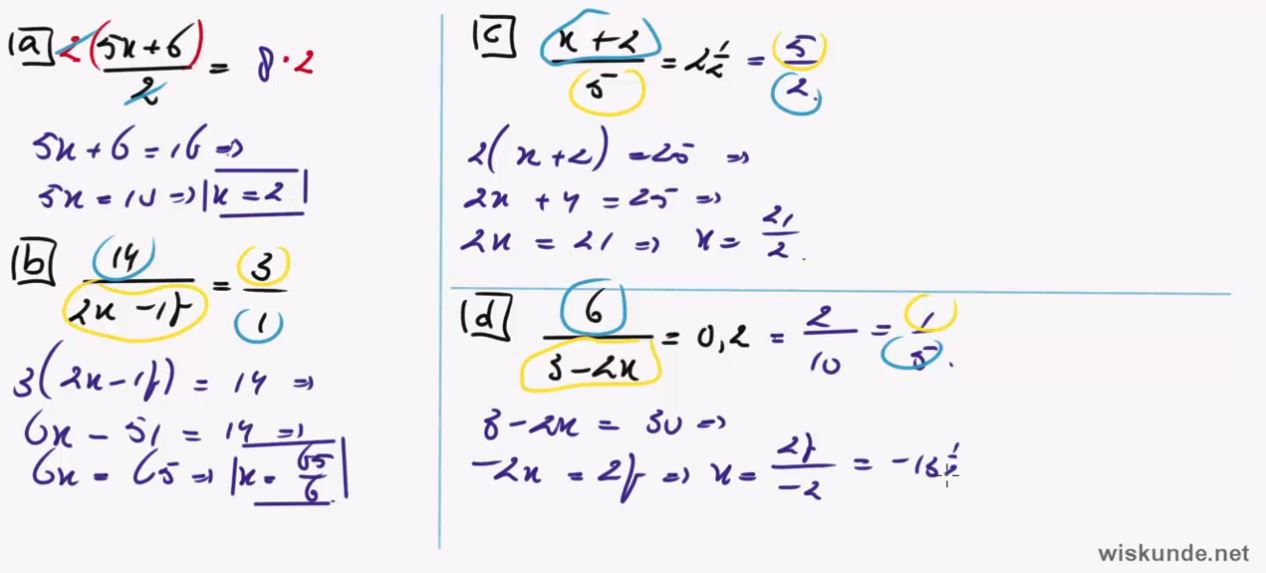 1a 2(5x+6)/2 = 8·2
5x+6=16 ⇒
5x = 10 ⇒ x = 2
1b 14/(2x-17) = 3/1
3(2x-17) = 14 ⇒
6x - 51 = 14 ⇒
6x = 65 ⇒ x = 65/6
1c (x+2)/5 = 2 1/2 = 5/2.
2(x+2) = 25 ⇒
2x + 4 = 25 ⇒
2x = 21 ⇒ x = 21/2.
1d 6/(3-2x) = 0,2 = 2/10 = 1/5.
3-2x = 30 ⇒
-2x = 27 ⇒ x = 27/-2 = -13 1/2
wiskunde.net